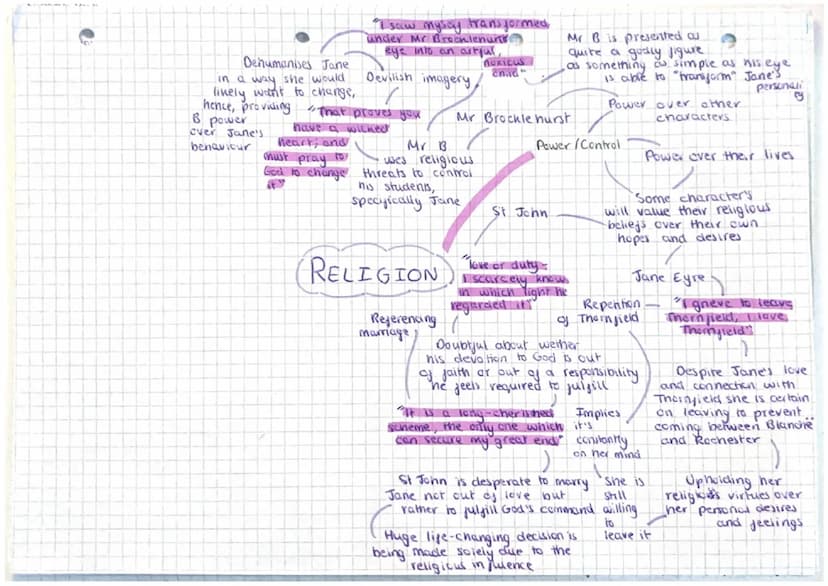 "I saw myself transformed
under Mr Brocklehurst's
eye into an artful,
noxious
child"
Mr B is presented as
quite a godly figure
as something as simple as his eye
is able to "transform" Jane's
personality
Dehumanises Jane
in a way she would
likely want to change,
hence, providing
B power
over Jane's
behaviour
Devilish imagery
"That proves you
have a wicked
heart; and
must pray to
God to change
it"
Mr B
uses religious
threats to control
his students,
specifically Jane
Mr Brocklehurst
Power over other
characters
Power/Control
Power over their lives
Some character's
will value their religious
beliefs over their own
hopes and desires
St John
RELIGION
"love or duty -
I scarcely know
in which light he
regarded it"
Jane Eyre
Repention
of Thornfield
"I grieve to leave
Thornfield, I love
Thornfield"
Referencing
marriage
Doubtful about wether
his devotion to God is out
of faith or out of a responsibility
he feels required to fulfill
Despire Jane's love
and connection with
Thornfield she is certain
on leaving to prevent
coming between Blanche
and Rochester
"It is a long-cherished
scheme, the only one which
can secure my great end"
Implies
it's
constantly
on her mind
St John is desperate to marry
Jane not out of love but
rather to fulfill God's command
She is
still
willing
to
leave it
Upholding her
religious virtues over
her personal desires
and feelings
Huge life-changing decision is
being made solely due to the
religious influence